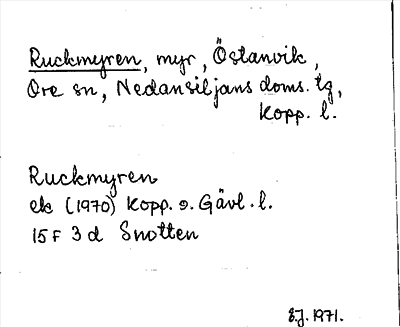 Ruckmyren, myr, Östanvik,
Ore sn, Nedansiljans doms. tg,
Kopp. l.
Ruckmyren
ek (1970) Kopp. o. Gävl. l.
15 F 3 d Snotten
E.J. 1971.